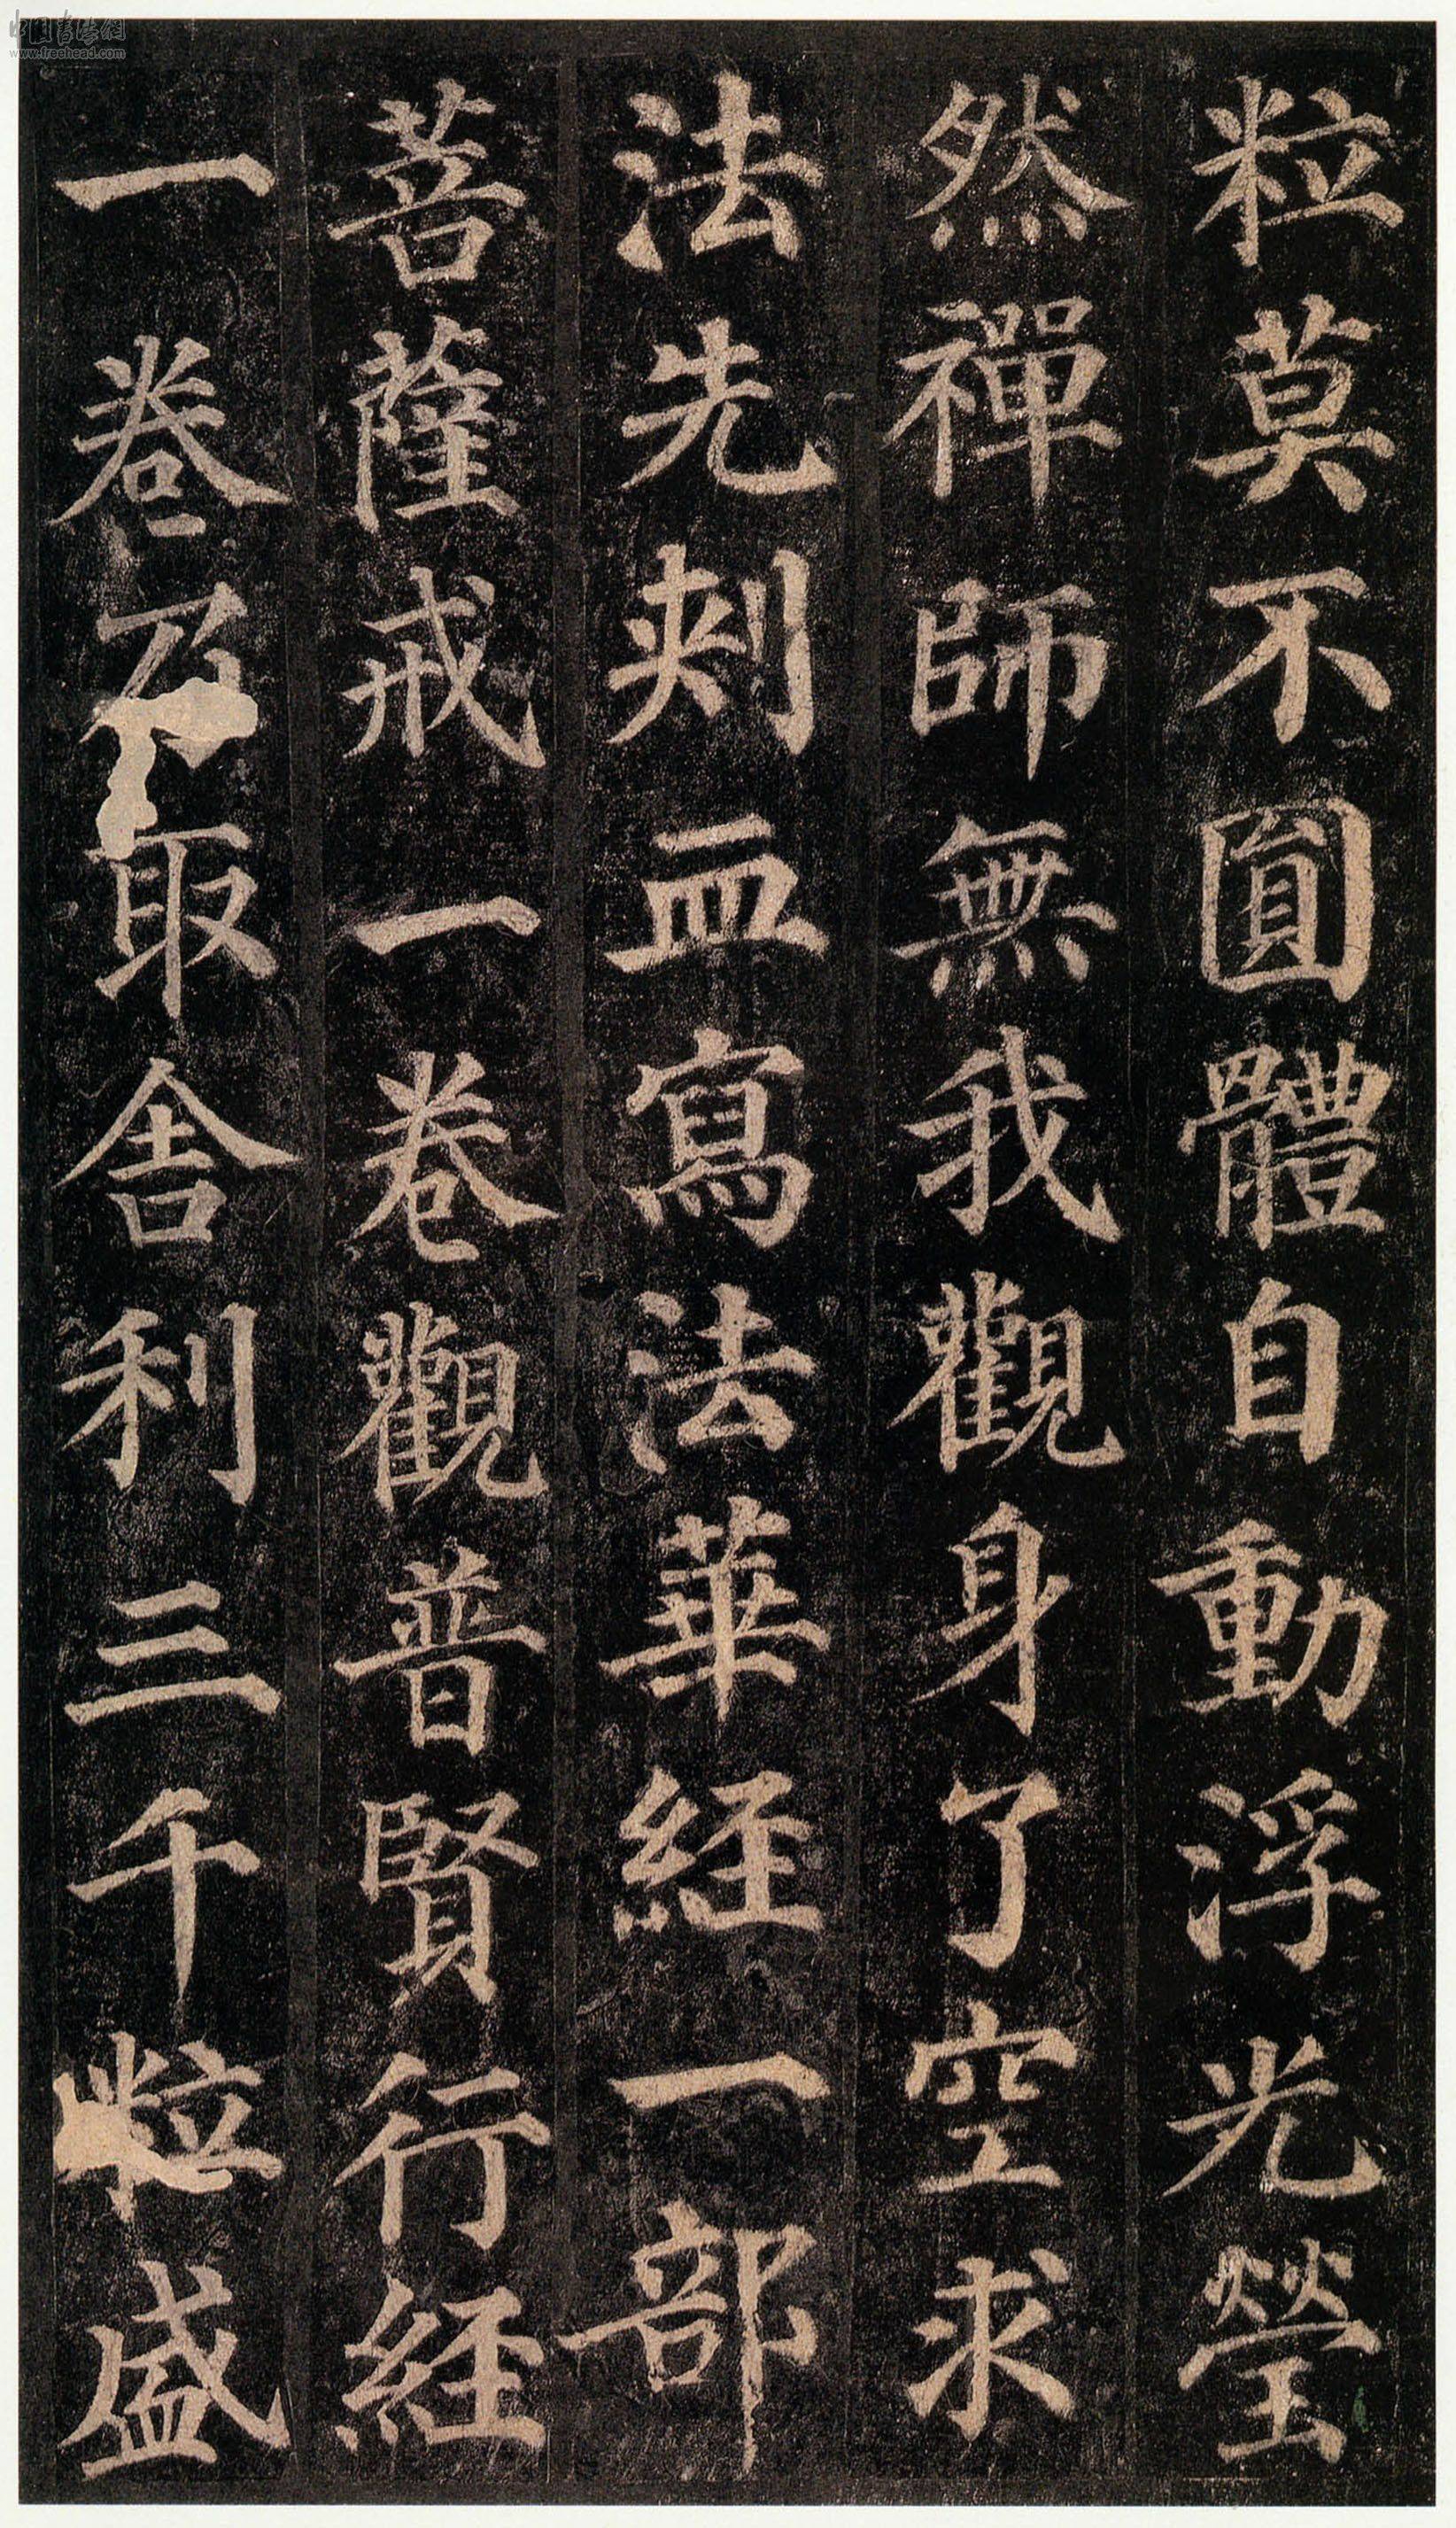 粒莫不圎體自動浮光瑩
然禪師無我觀身了空求
法先刾血寫法華經一部
菩薩戒一卷觀普賢行經
一卷乃取舍利三千粒盛
中国书法网
www.freehead.com